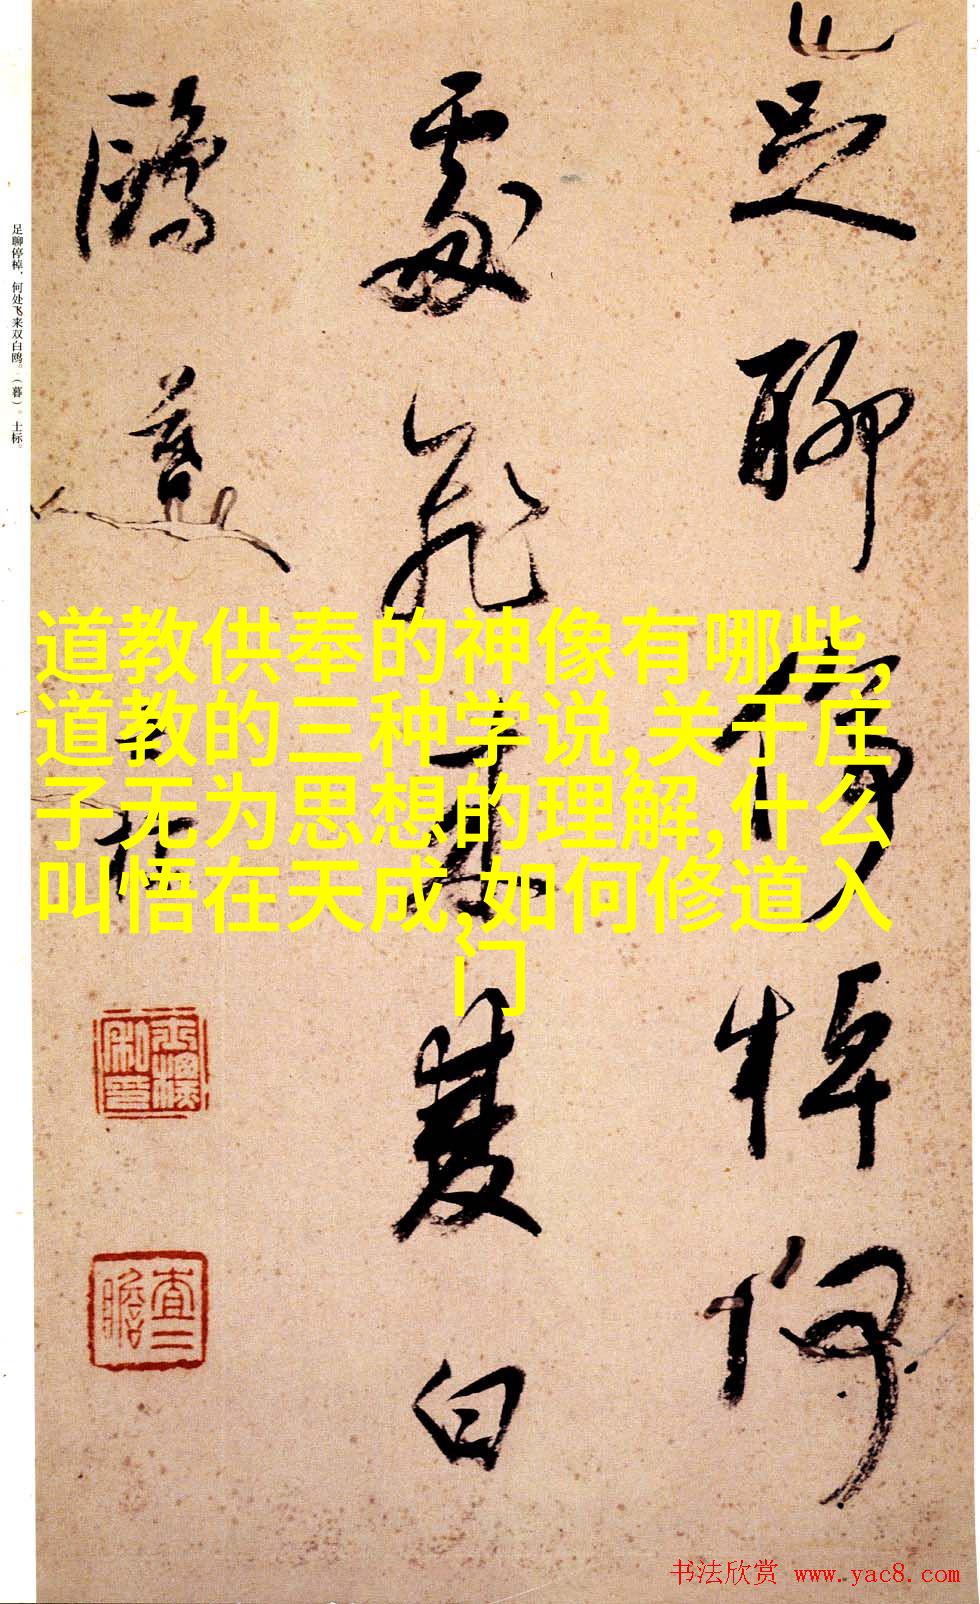 足聊停棹何
處飛来雙白
鷗 暮 士标
足聊停棹，何处飞来双白鸥。（暮）。士标。
道教供奉的神像有哪些,
道教的三种学说,关于庄
子无为思想的理解,什么
叫悟在天成,如何修道入
门
查二
瞻
书法欣赏 www.yac8.com